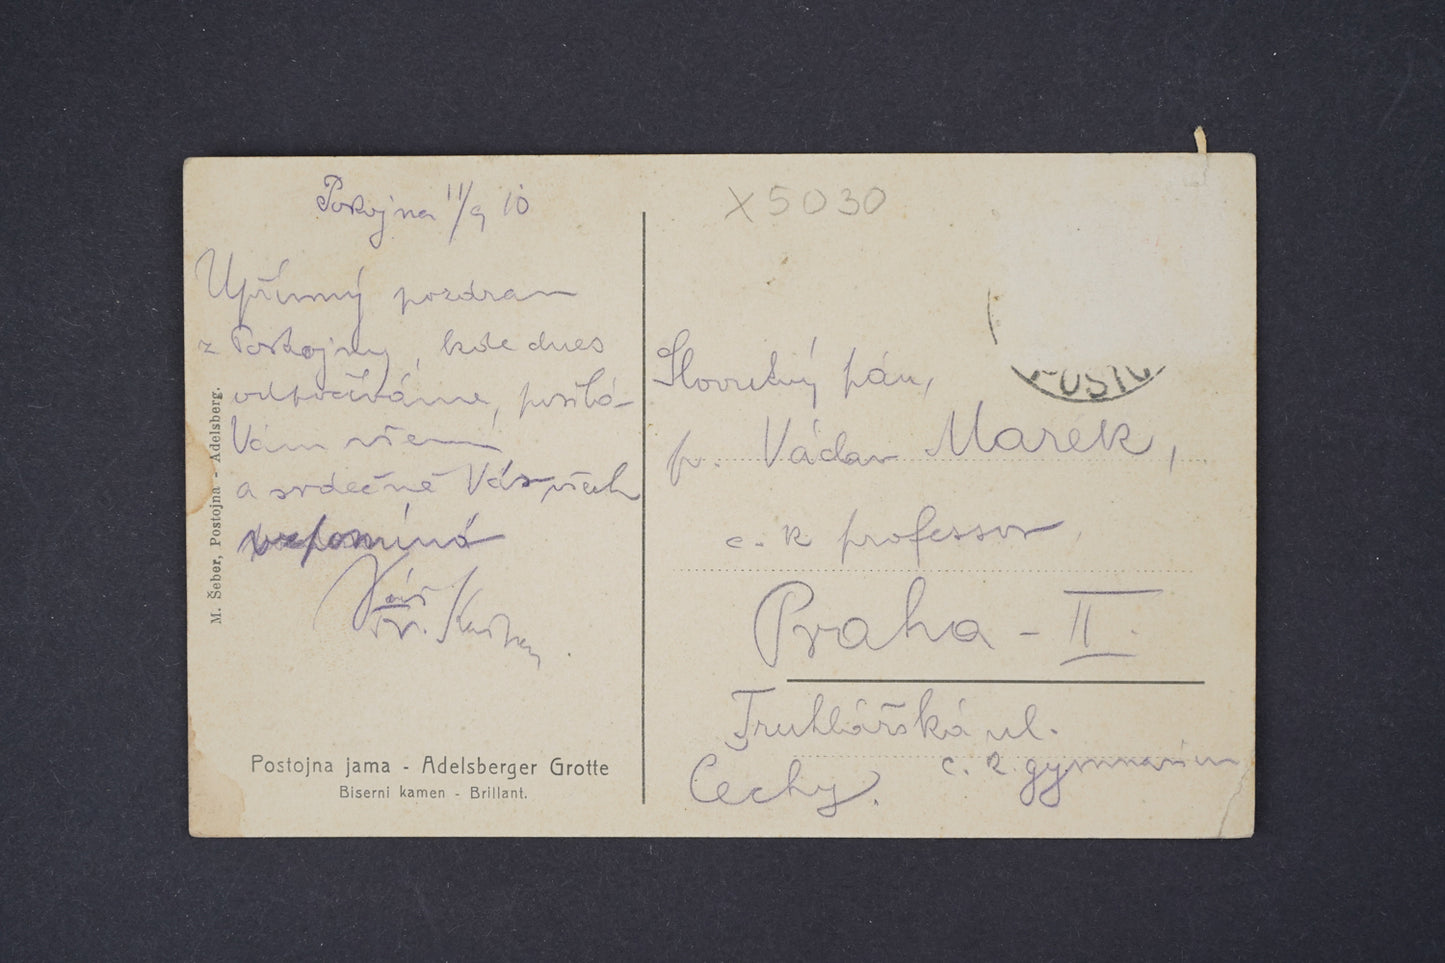 Postojna 11/9 10
Upřímný pozdrav
z Postojny, kde dnes
odpočíváme, posílá
Vám všem
a srdečně Vás všech
vzpomíná
Váš
Fr.
M. Šeber, Postojna - Adelsberg.
Postojna jama - Adelsberger Grotte
Biserni kamen - Brillant.
X5030
POSTO
Slovutný pán,
p. Václav Marek,
c. k. professor
Praha - II.
Truhlářská ul.
c. k. gymnasium
Čechy.